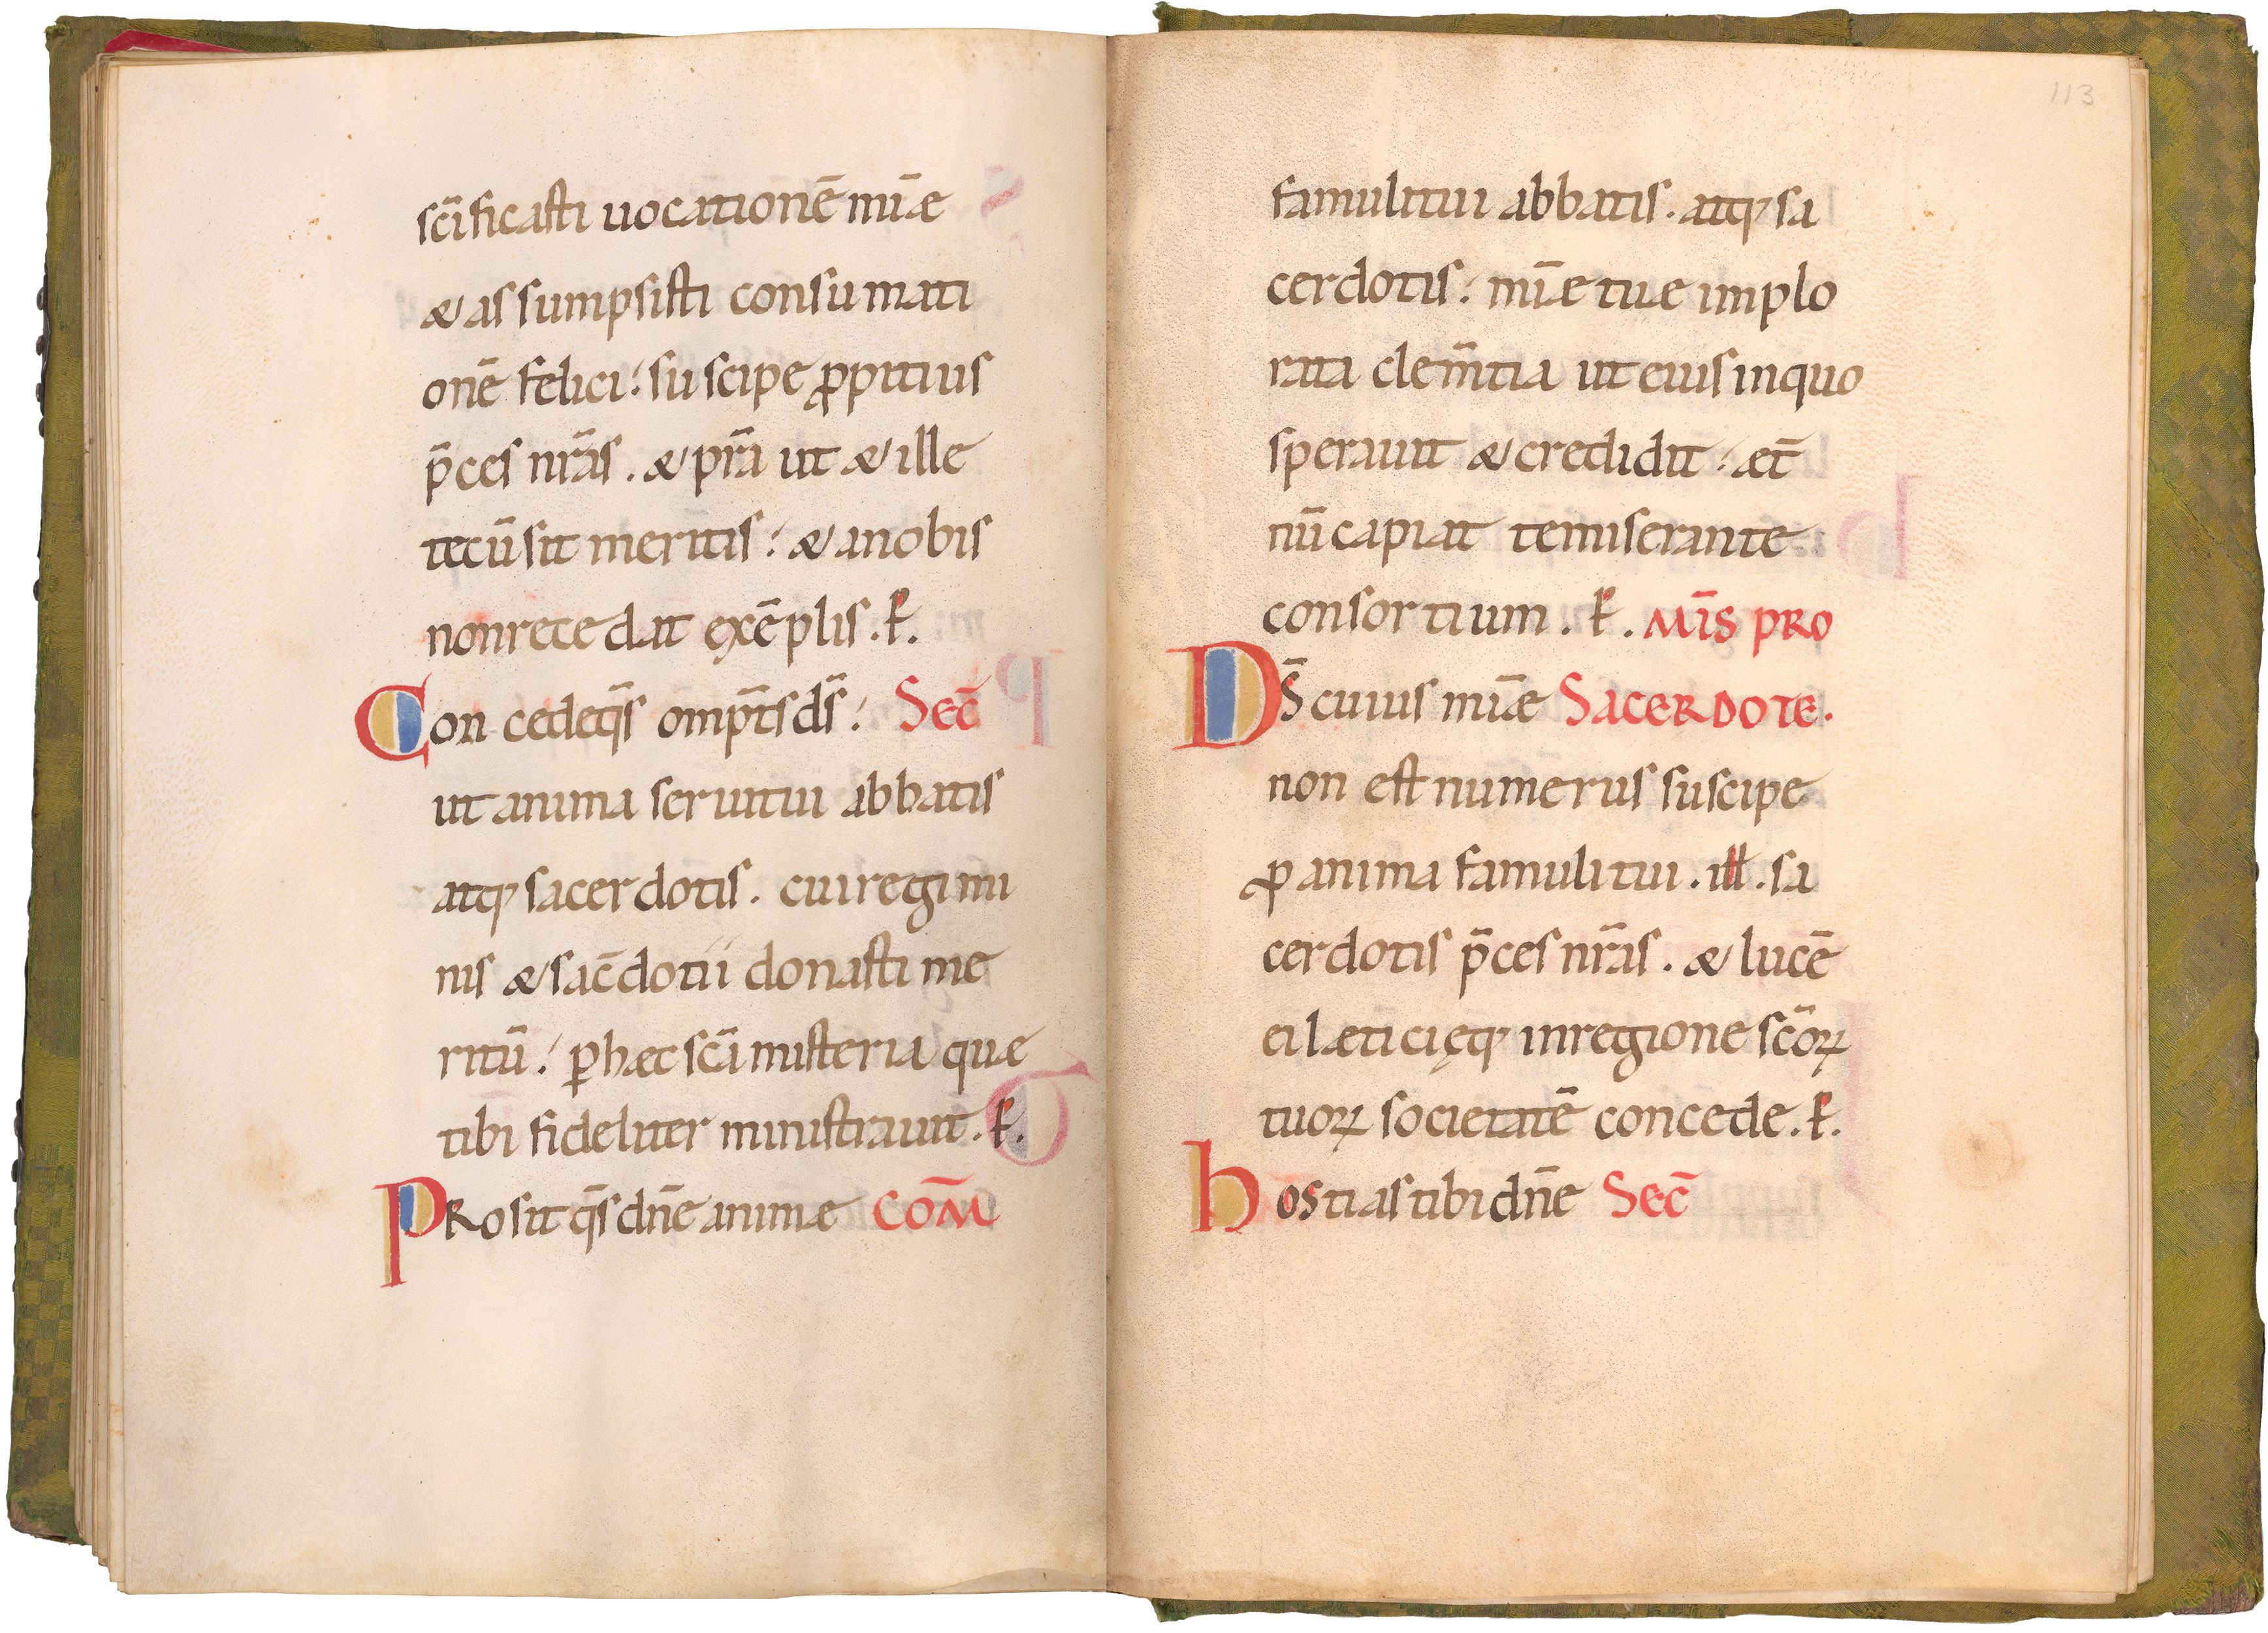 scı̄ficasti uocationē mīae
& assumpsisti consumati
onē felici: suscipe ꝓpitius
p̄ces nr̄as. & pr̄a ut & ille
tecū sit meritis: & a nobis
non recedat exēplis. P̄.
Concede qs̄ omp̄ts ds̄: Sec̄
ut anima serui tui abbatis
atq; sacerdotis. cui regimi
nis & sac̄dotii donasti me
ritū: ꝑ haec sc̄a misteria quae
tibi fideliter ministrauit. P̄.
PRosit qs̄ dn̄e animae COM̄
113
famuli tui abbatis. atq; sa
cerdotis: mīae tuae implo
rata clem̄tia ut eius in quo
sperauit & credidit: aet̄
nū capiat te miserante
consortium. P̄. MIS̄ PRO
DS̄ cuius mīae SACERDOTE.
non est numerus suscipe
ꝓ anima famuli tui. ill. sa
cerdotis p̄ces nr̄as. & lucē
ei laeticięq; in regione sc̄oꝝ
tuoꝝ societatē concede. P̄.
hostias tibi dn̄e Sec̄